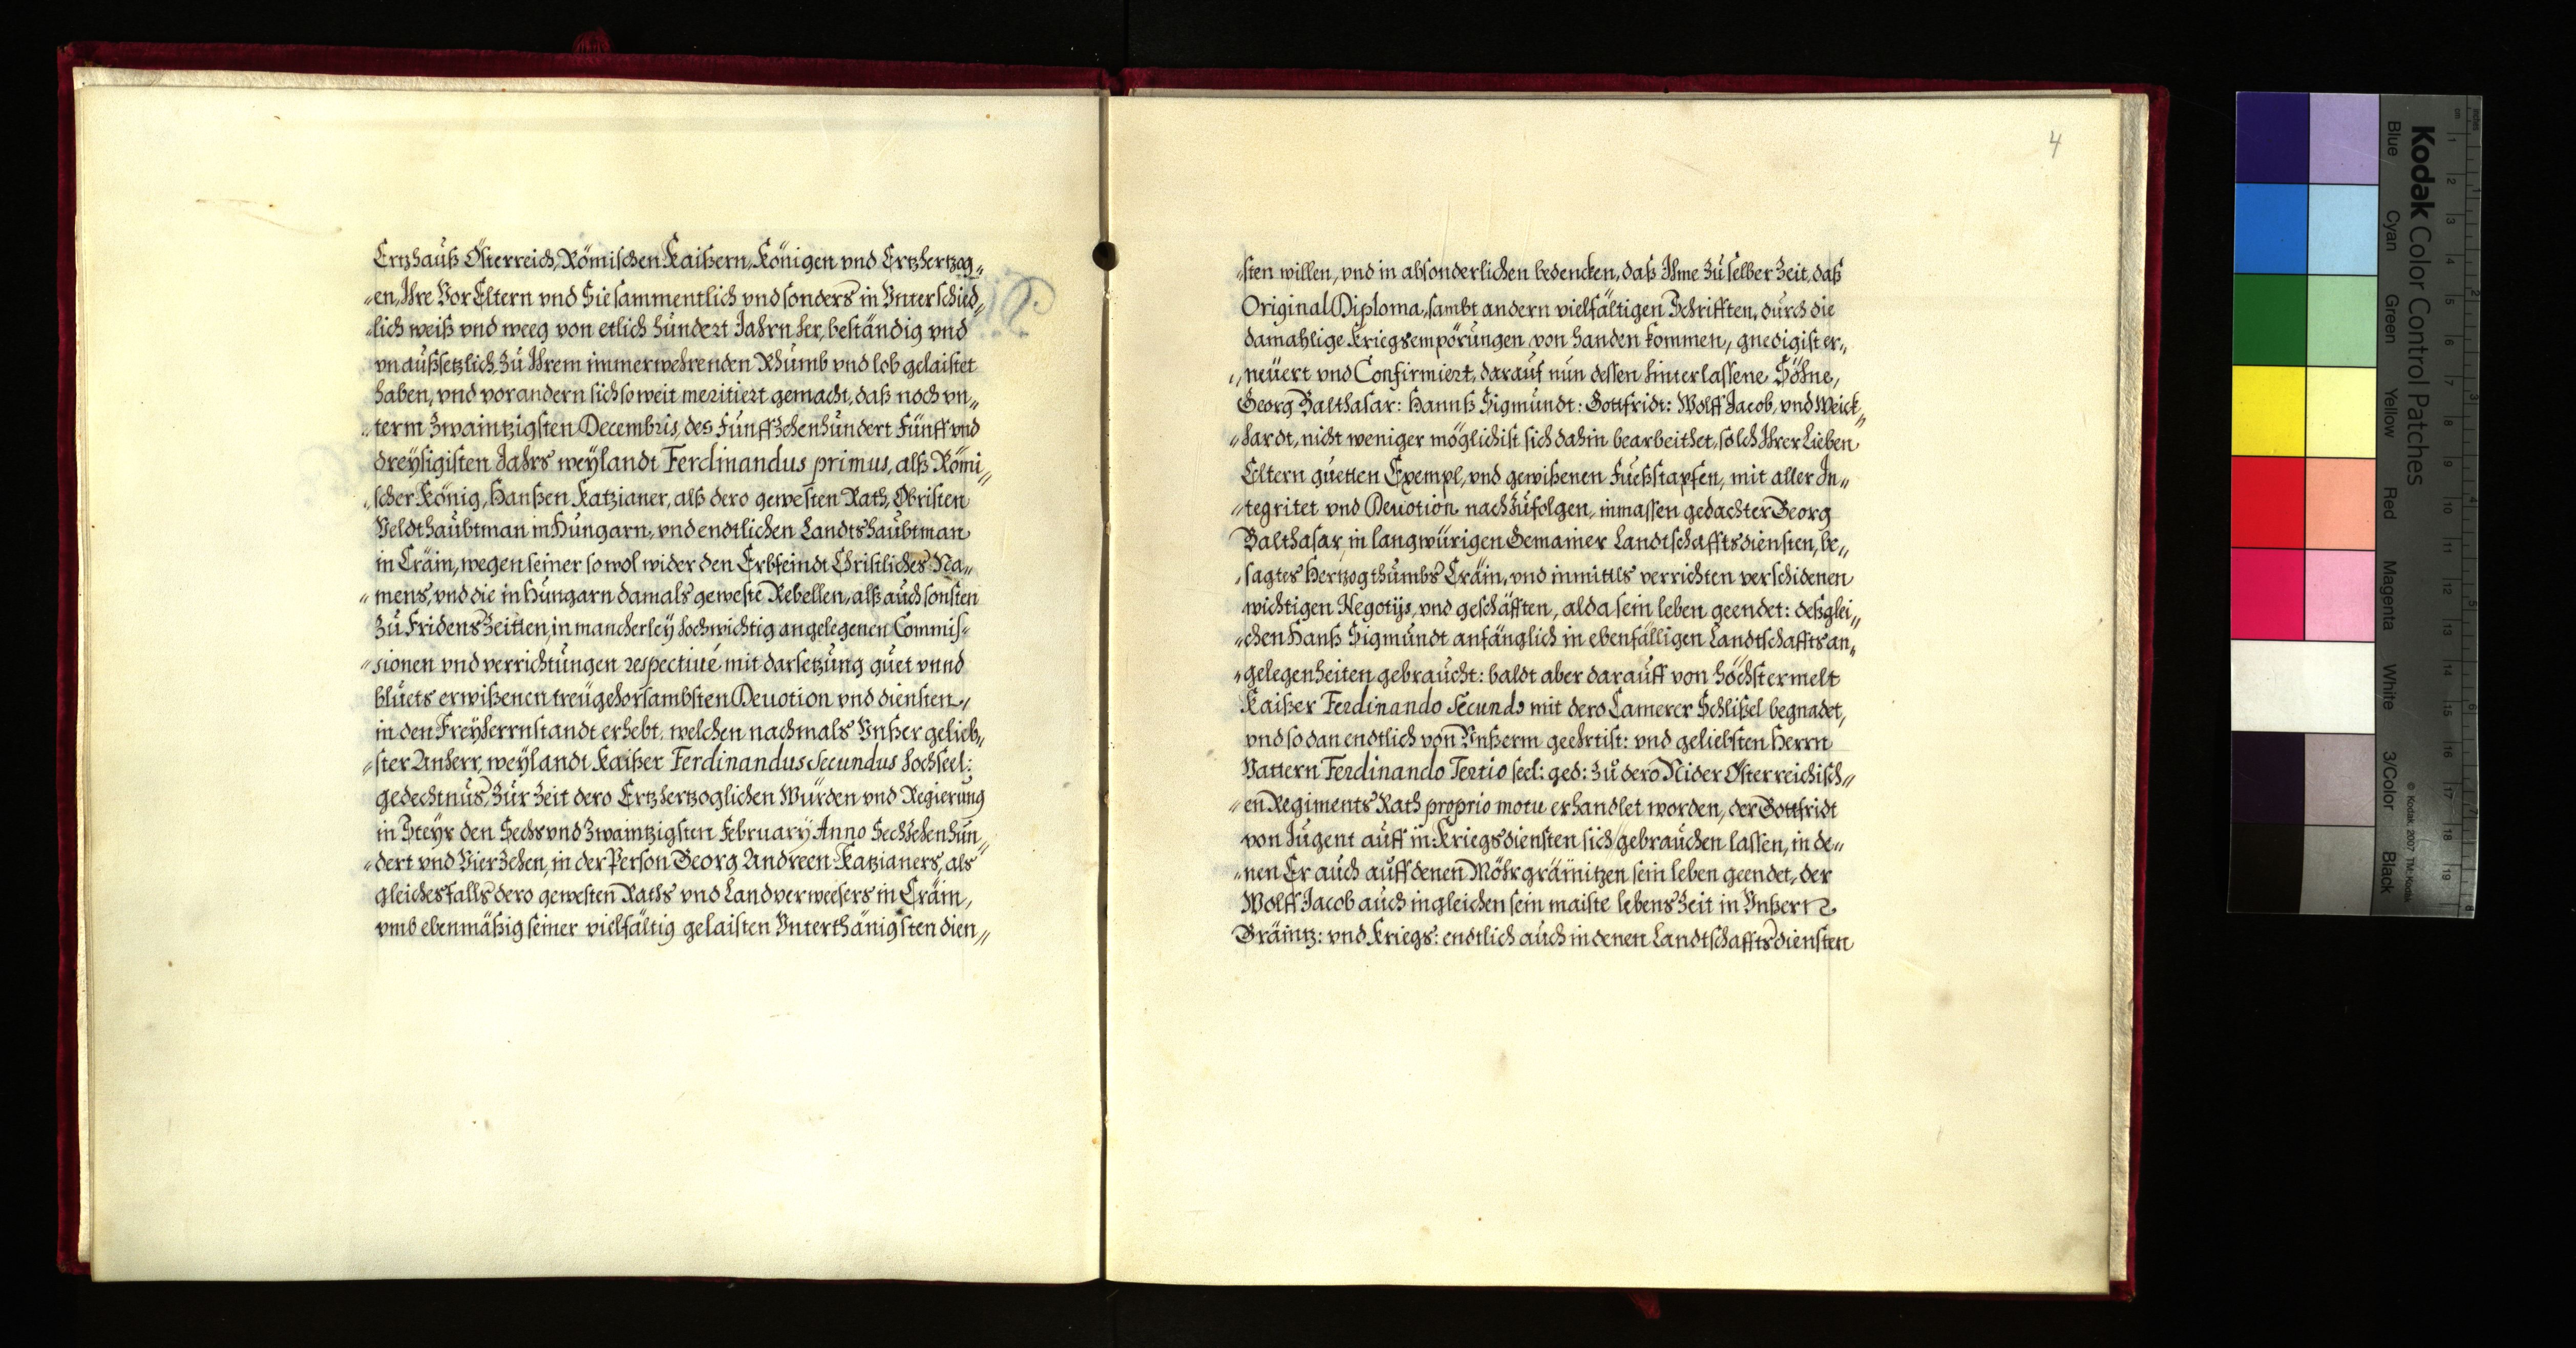 Ertzhauß Österreich, Römischen Kaißern, Königen vnd Ertzhertzog„
„en, Ihre Vor Eltern vnd Sie sammentlich vnd sonders in Vnterschied„
„lich weiß vnd weeg von etlich hundert Jahrn her, beständig vnd
vnaußsetzlich, zu Ihrem immerwehrenden Rhumb vnd lob gelaistet
haben, vnd vor andern sich so weit meritiert gemacht, daß noch vn„
„term Zwaintzigsten Decembris, des Funffzehenhundert Fünff vnd
dreysigisten Jahrs weylandt Ferdinandus primus, alß Römi„
„scher König, Hanßen Katzianer, alß dero gewesten Rath, Obristen
Veldthaubtman in Hungarn, vnd endtlichen Landtshaubtman
in Cräin, wegen seiner so wol wider den Erbfeindt Christliches Na„
„mens, vnd die in Hungarn damals geweste Rebellen, alß auch sonsten
zu Fridens Zeitten, in mancherley hochwichtig angelegenen Commis„
„sionen vnd verrichtungen respectiué mit darsetzung guet vnnd
bluets erwißenen treugehorsambsten Deuotion vnd diensten,
in den Freyherrnstandt erhebt, welchen nachmals Vnßer gelieb„
„ster Anherr, weylandt Kaißer Ferdinandus Secundus hochseel:
gedechtnus, zur Zeit dero Ertzhertzoglichen Würden vnd Regierung
in Steyr den Sechs vnd Zwaintzigsten February Anno Sechzehenhun„
„dert vnd Vierzehen, in der Person Georg Andreen Katzianers, als
gleichesfalls dero gewesten Raths vnd Landverweesers in Cräin,
vmb ebenmäßig seiner vielfältig gelaisten Vnterthänigsten dien„
4
„sten willen, vnd in absonderlichen bedencken, daß Ihme zu selber Zeit, daß
Original Diploma, sambt andern vielfältigen Schrifften, durch die
damahlige Kriegsempörungen von handen kommen, gnedigist er„
„neuert vnd Confirmiert, darauf nun dessen hinterlassene Söhne,
Georg Balthasar: Hannß Sigmundt: Gottfridt: Wolff Jacob, vnd Weick„
„hardt, nicht weniger möglichist sich dahin bearbeithet, solch Ihrer Lieben
Eltern guetten Exempl, vnd gewißenen Fueßstapfen, mit aller In„
„tegritet vnd Deuotion nachzufolgen, inmassen gedachter Georg
Balthasar, in langwürigen Gemainer Landtschafftsdiensten, be„
„sagtes Hertzogthumbs Cräin, vnd inmittls verrichten verschidenen
wichtigen Negotijs, vnd geschäfften, alda sein leben geendet: deßglei„
„chen Hanß Sigmundt anfänglich in ebenfälligen Landtschafftsan„
„gelegenheiten gebraucht: baldt aber darauff von höchstermelt
Kaißer Ferdinando Secundo mit dero Camerer Schlißel begnadet,
vnd so dan endtlich von Vnßerm geehrtist: vnd geliebsten Herrn
Vattern Ferdinando Tertio seel: ged: zu dero Nider Österreichisch„
„en Regiments Rath proprio motu erhandlet worden, der Gottfridt
von Jugent auff in Kriegsdiensten sich gebrauchen lassen, in de„
„nen Er auch auff denen Möhrgränitzen sein leben geendet, der
Wolff Jacob auch ingleichen sein maiste lebens Zeit in Vnßern
Gräintz: vnd Kriegs: endtlich auch in denen Landtschafftsdiensten
Kodak Color Control Patches
Blue Cyan Green Yellow Red Magenta White 3/Color Black
© Kodak, 2007 TM: Kodak